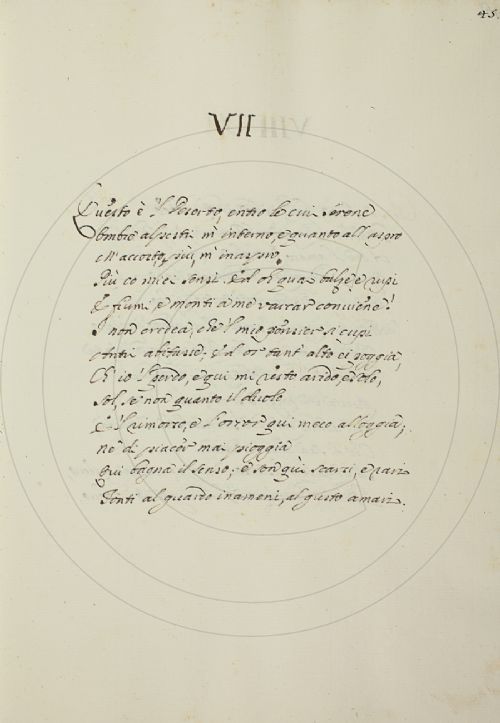 45.
VII
Questo è 'l Deserto, entro le cui serene
Ombre alpestri m'interno, e quanto all'aspro
M'accosto, più m'inaspro
Più co miei sensi. Ed oh quai balze e rupi
E fiumi e monti a me varcar conviene!
I non credea, che 'l mio pensier sì cupi
Antri abitasse; ed or tant'alto ei poggia,
Ch'io 'l perdo, e qui mi resto arido, e solo,
Sol, se non quanto il duolo
E 'l rimorso, e l'orror qui meco alloggia;
Nè di piacer mai pioggia
Qui bagna il senso; e son qui scarsi, e rari
Fonti al guardo inameni, al gusto amari.